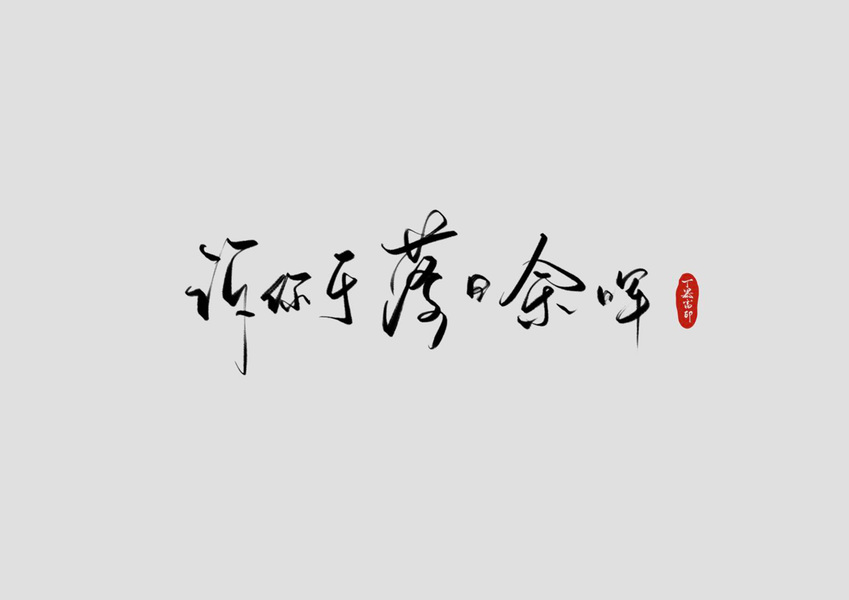 许你于落日余晖